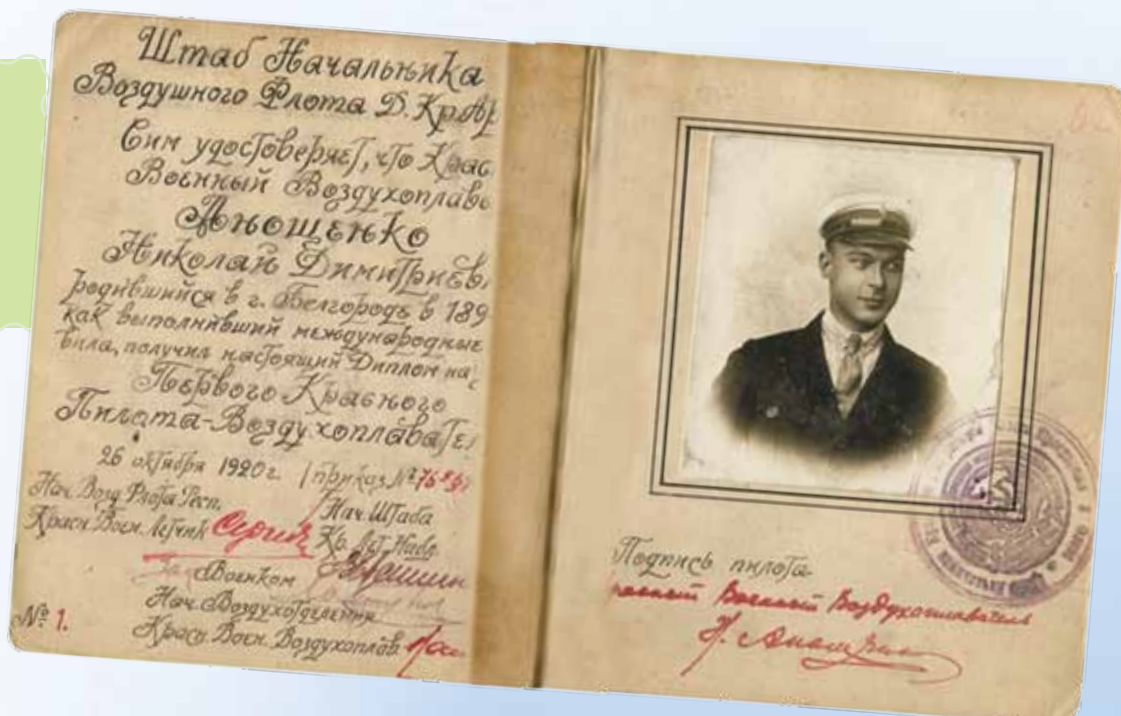 Штаб Начальника
Воздушного Флота Д. Кр. Ар
Сим удостоверяет, что Крас
Военный Воздухоплава
Анощенко
Николай Димитриев
родившийся в г. Белгороде в 189
как выполнивший международные
вила, получил настоящий Диплом на
Первого Красного
Пилота-Воздухоплавател
26 октября 1920 г. приказ №
Нач. Возд. Флота Респ.
Красн. Воен. Летчик
Нач. Штаба
Кр. Лет. Набл.
Военком
Нач. Воздухотделения
Красн. Воен. Воздухоплав.
№ 1.
Подпись пилота
Военный Воздухоплаватель
Н. Анощенко